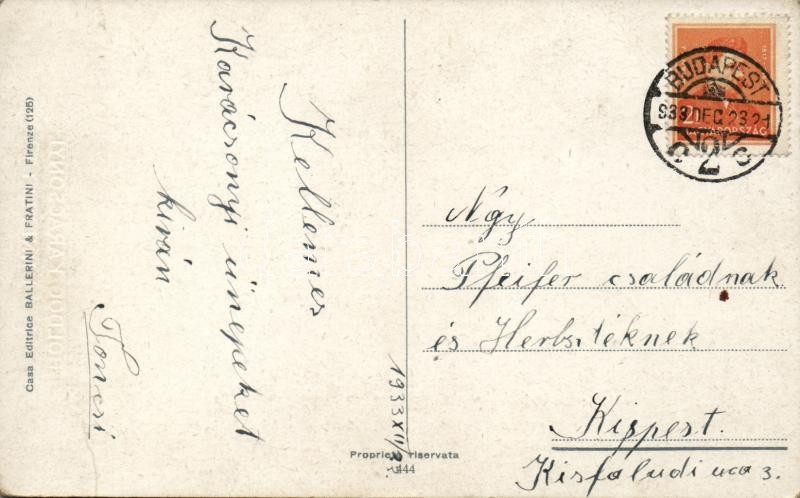 Kellemes
Karácsonyi ünnepeket
kiván
Toncsi
1933 XII/
Casa Editrice BALLERINI & FRATINI - Firenze (125)
Proprietà riservata
444
BUDAPEST
933 DEC 23 21
MAGYARORSZÁG
Ngy
Pfeifer családnak
és Herbstéknek
Kispest.
Kisfaludi uca 3.